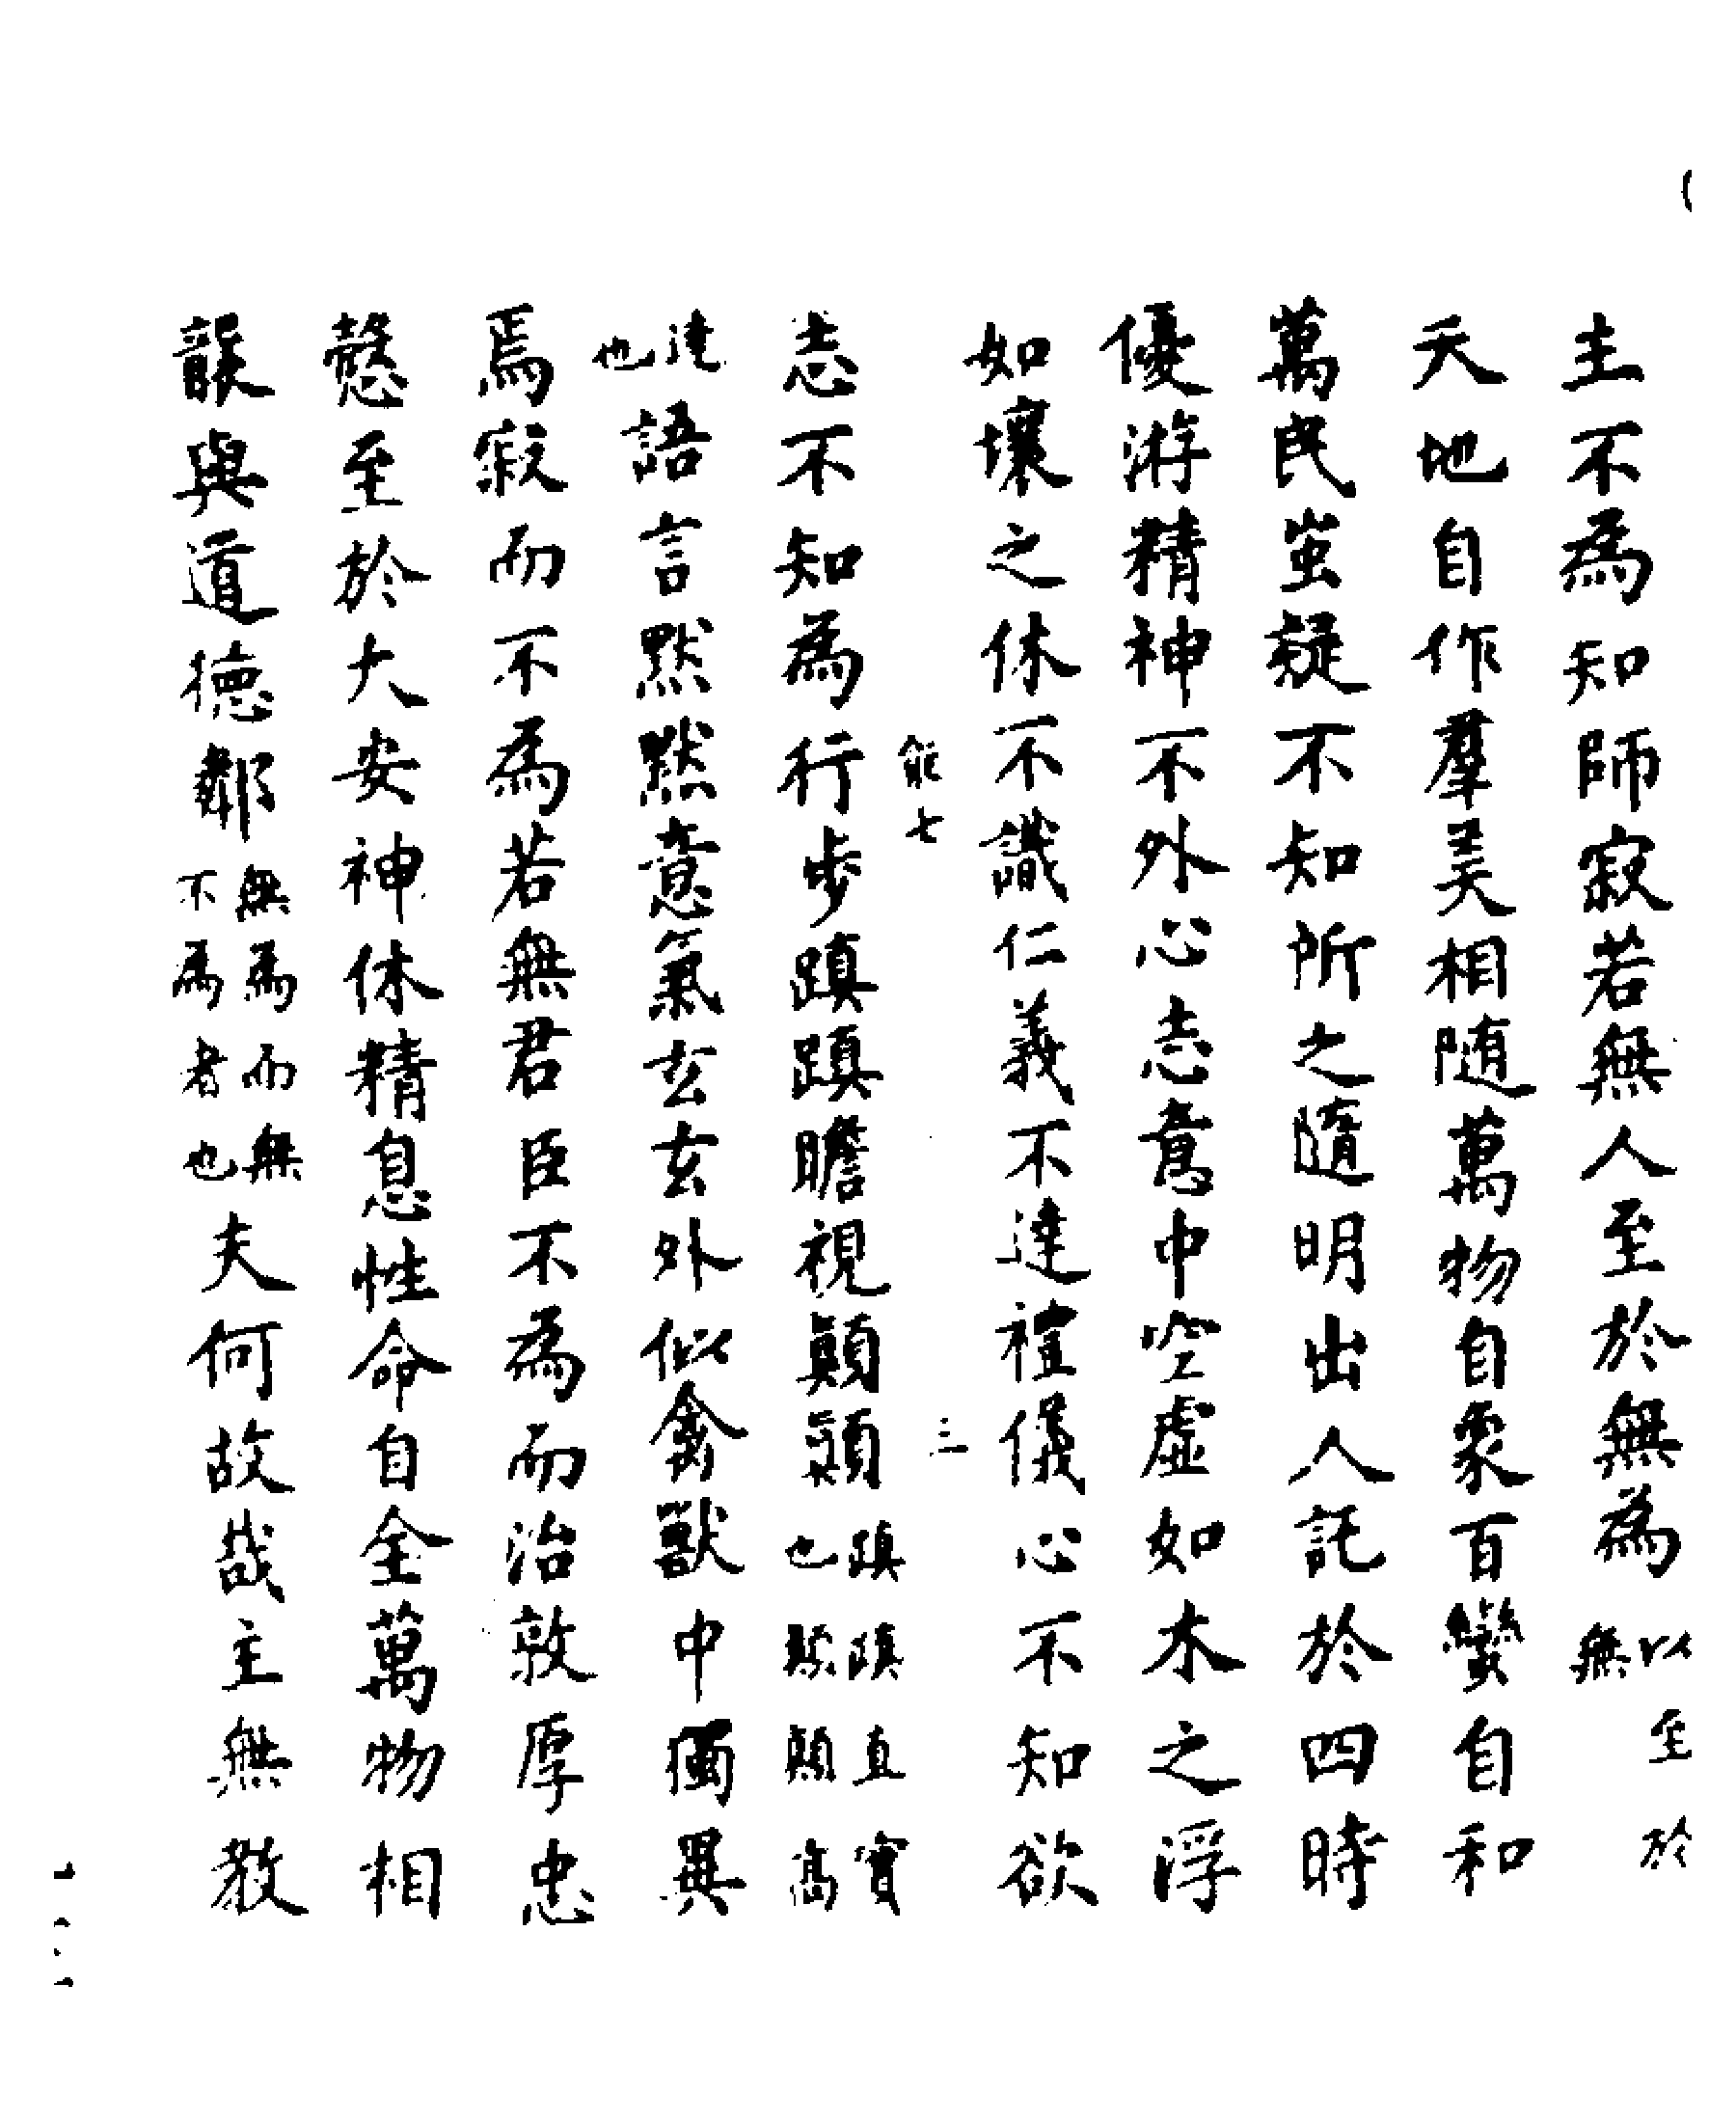 主不為知師寂若無人至於無為以至於無
天地自作羣美相随萬物自象百蠻自和
萬民蚩疑不知所之隨明出人託於四時
優游精神不外心志意中空虛如木之浮
如壤之休不識仁義不達禮儀心不知欲
能七 三
志不知為行步蹎蹎瞻視顛顛蹎蹎直實也顛顛高
達也語言默默意氣玄玄外似禽獸中獨異
焉寂而不為若無君臣不為而治敦厚忠
慤至於大安神休精息性命自全萬物相
與道德鄰無為而無不為者也夫何故哉主無教